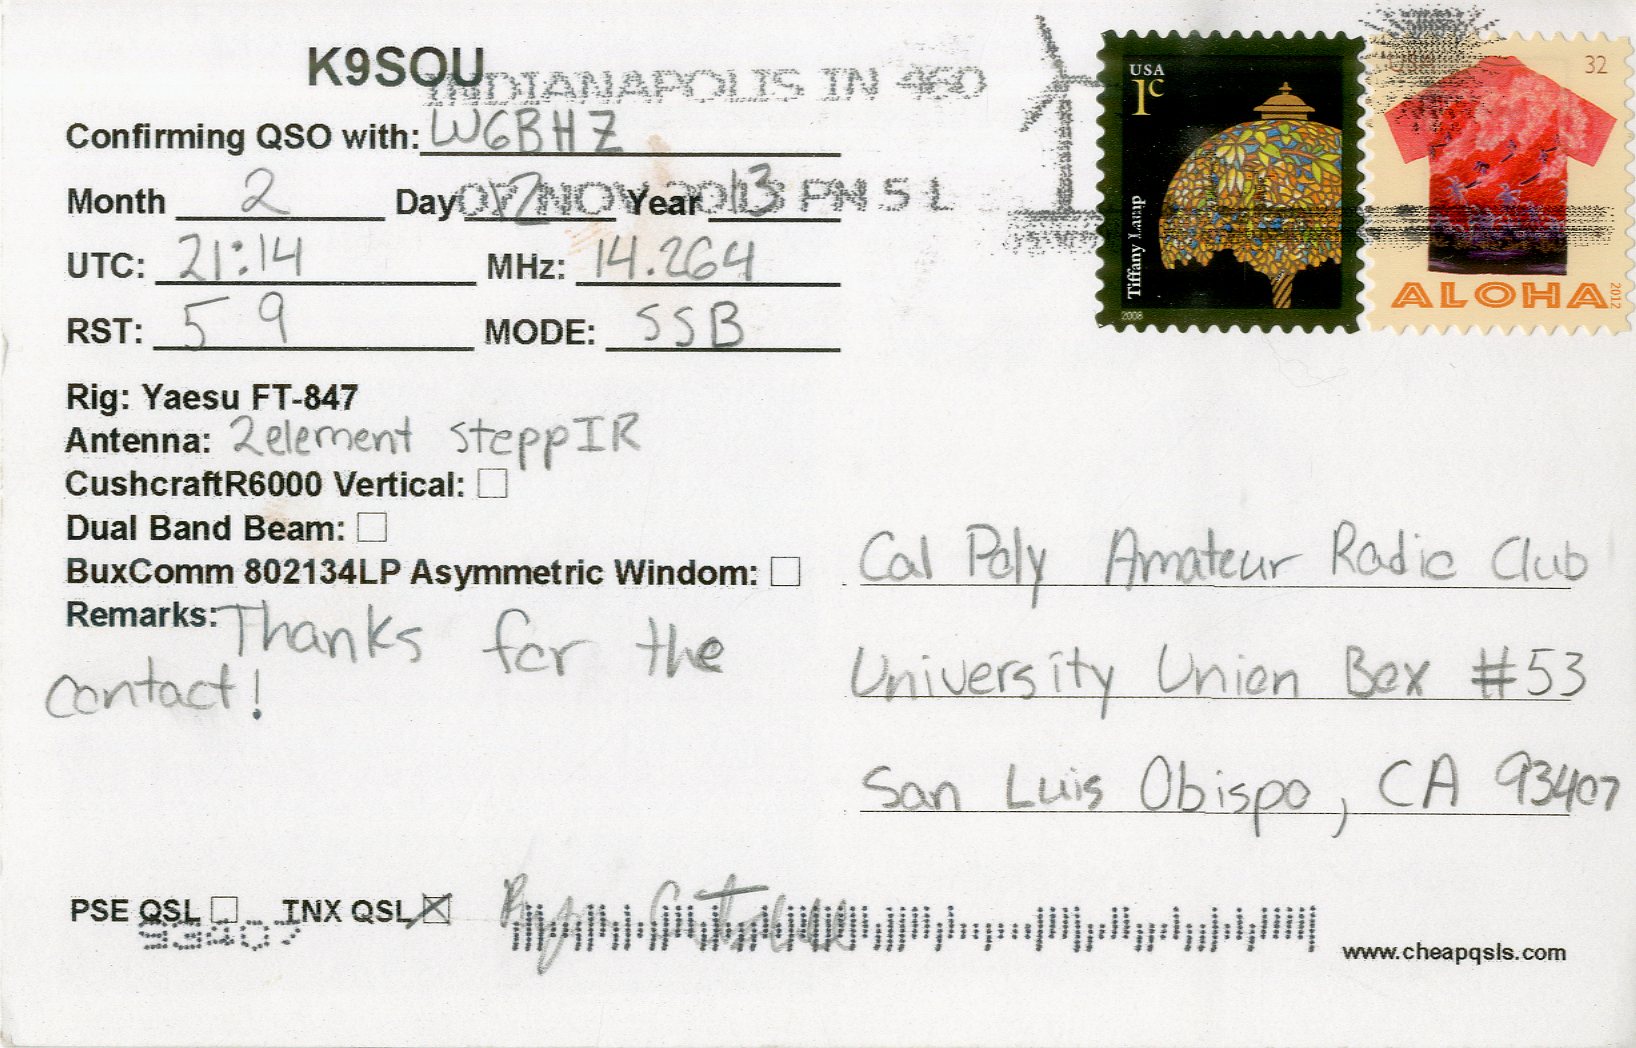 K9SOU
INDIANAPOLIS IN 460
Confirming QSO with: W6BHZ
07 NOV 2013 PM 5 L
Month 2 Day 2 Year 13
UTC: 21:14 MHz: 14.264
RST: 59 MODE: SSB
USA
1c
Tiffany Lamp
2008
32
ALOHA
2012
Rig: Yaesu FT-847
Antenna: 2element SteppIR
CushcraftR6000 Vertical:
Dual Band Beam:
BuxComm 802134LP Asymmetric Windom:
Remarks: Thanks for the
contact!
Cal Poly Amateur Radio Club
University Union Box #53
San Luis Obispo, CA 93407
PSE QSL TNX QSL
93407
www.cheapqsls.com